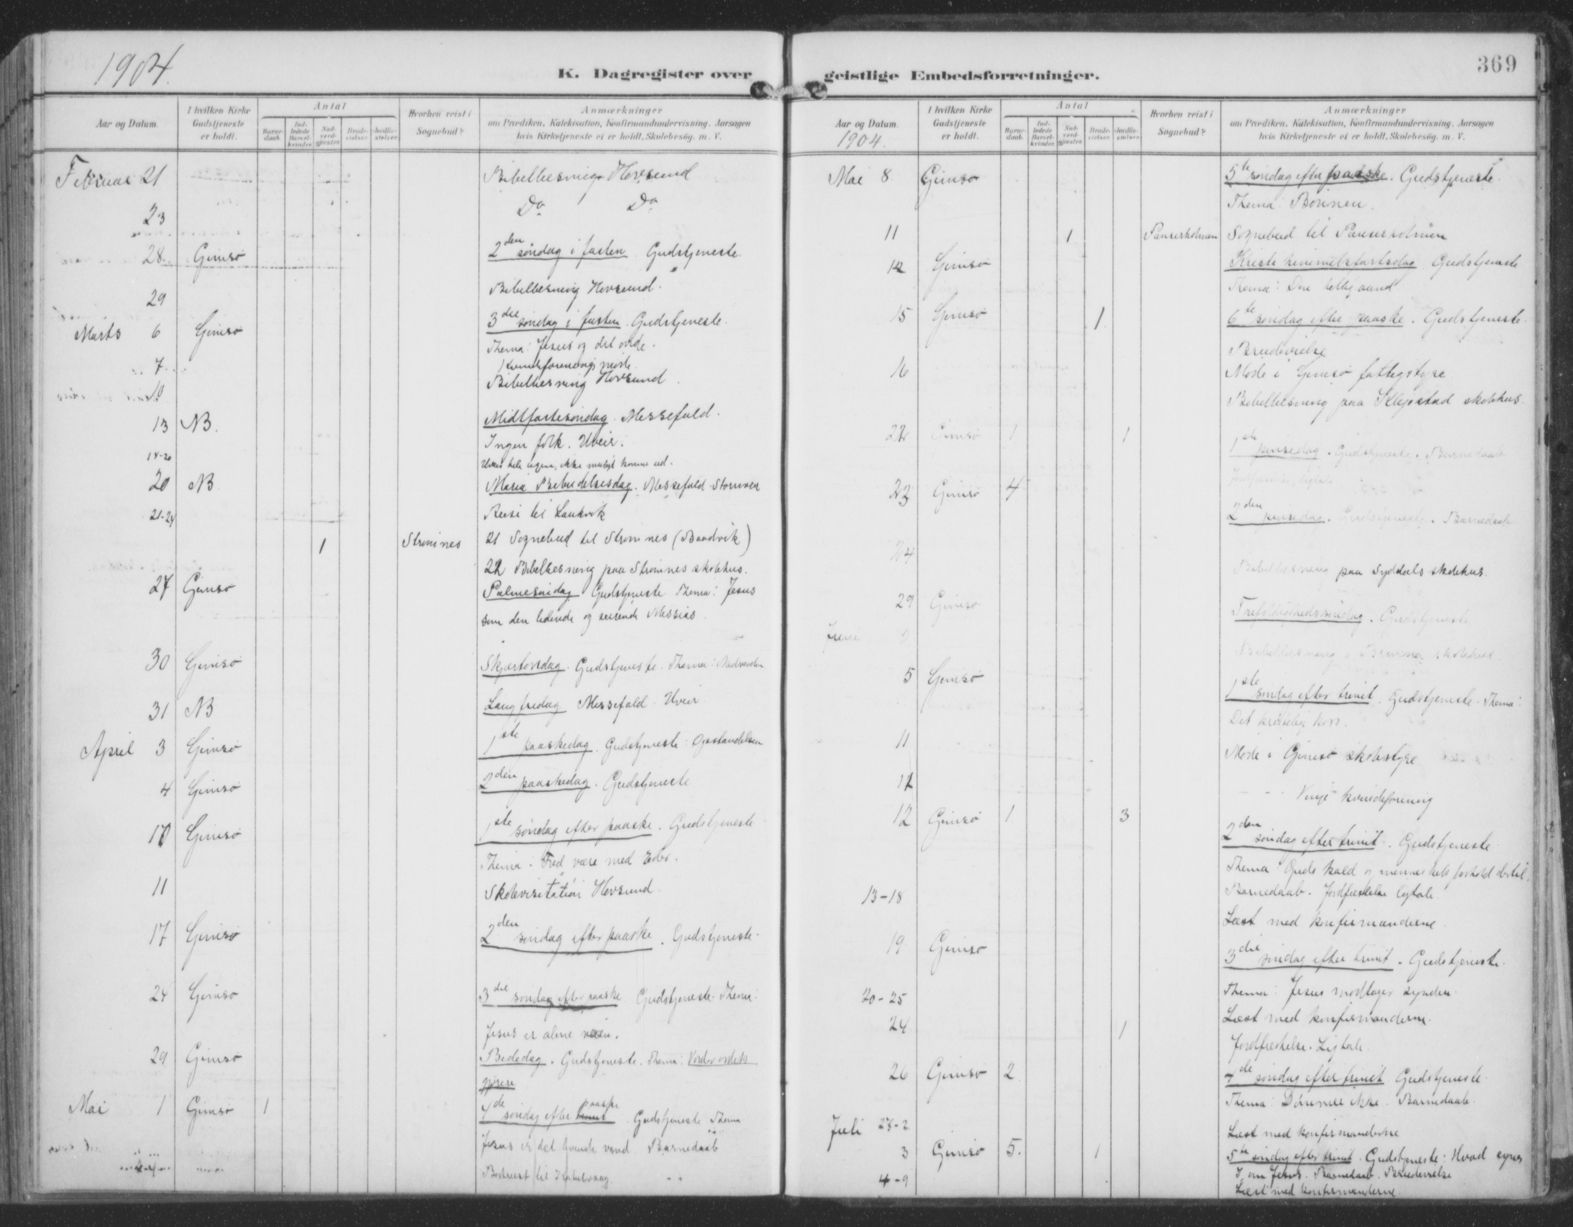 1904.
K. Dagregister over
Aar og Datum.
I hvilken Kirke Gudstjeneste er holdt.
Antal
Hvorhen reist i Sognebud?
Anmærkninger
om Prædiken, Katekisation, Konfirmandundervisning, Aarsagen
hvis Kirketjeneste ei er holdt, Skolebesøg, m. V.
Februar 21 Bibellæsning Hovsund
23 Do Do
28 Gimsø 2den søndag i fasten Gudstjeneste
29 Bibellæsning Hovsund.
Marts 6 Gimsø 3die søndag i fasten. Gudstjeneste.
Thema: Jesus og det onde.
7 Kvindeforenings møde
10 Bibellæsning Hovsund
13 NB. Midtfastesøndag. Messefald.
Ingen folk. Uveir.
14-20
20 NB Maria Bebudelsesdag. Messefald
21-24 Reise til Laukvik
1 Strømnes 21 Sognebud til Strømnes (Sandvik)
22 Bibellæsning paa Strømnes skolehus.
27 Gimsø Palmesøndag Gudstjeneste Thema: Jesus
som den lidende og seirende Messias.
30 Gimsø Skjærtorsdag. Gudstjeneste. Thema: Nadverden
31 NB Langfredag Messefald Uveir
April 3 Gimsø 1ste paaskedag. Gudstjeneste. Opstandelsen
4 Gimsø 2den paaskedag. Gudstjeneste
10 Gimsø 1ste søndag efter paaske. Gudstjeneste
Thema: Fred være med Eder.
11 Skolevisitation Hovsund.
17 Gimsø 2den søndag efter paaske. Gudstjeneste.
24 Gimsø 3die søndag efter paaske Gudstjeneste. Thema:
Jesus er alene
29 Gimsø Bededag. Gudstjeneste. Thema: Vorder ordets
gjørere
Mai 1 Gimsø 1 4de søndag efter paaske Gudstjeneste Thema
Jesus er det levende vand. Barnedaab
Bortreist til
geistlige Embedsforretninger.
369
Aar og Datum.
1904.
I hvilken Kirke Gudstjeneste er holdt.
Antal
Hvorhen reist i Sognebud?
Anmærkninger
om Prædiken, Katekisation, Konfirmandundervisning, Aarsagen
hvis Kirketjeneste ei er holdt, Skolebesøg, m. V.
Mai 8 Gimsø 5te søndag efter paaske. Gudstjeneste.
Thema: Bønnen.
11 1 Sognebud til
12 Gimsø Kristi himmelfartsdag Gudstjeneste
Thema: Den hellig aand
15 Gimsø 1 6te søndag efter paaske. Gudstjeneste.
Brudevielse
16 Møde i Gimsø fattigstyre
Bibellæsning paa skolehus.
22 Gimsø 1 1 1ste pinsedag. Gudstjeneste. Barnedaab
23 Gimsø 4 2den pinsedag. Gudstjeneste. Barnedaab
24 Bibellæsning paa Syddals skolehus.
29 Gimsø Trefoldighedssøndag. Gudstjeneste
Juni Bibellæsning skolehus.
5 Gimsø 1ste søndag efter trinit. Gudstjeneste. Thema:
Det
11 Møde i Gimsø skolestyre
11 kvindeforening
12 Gimsø 1 3 2den søndag efter trinit. Gudstjeneste
Thema: Guds kald og menneskets forhold dertil.
13-18 Barnedaab. Jordfæstelse ligtale.
Læst med konfirmanderne.
19 Gimsø 3die søndag efter trinit. Gudstjeneste.
Thema: Jesus modtager syndere
20-25 Læst med konfirmanderne.
24 1 Jordfæstelse. Ligtale.
26 Gimsø 2 4de søndag efter trinit Gudstjeneste
Thema: Dømmer ikke. Barnedaab.
Juli 27-2 Læst med konfirmanderne
3 Gimsø 5. 1 5te søndag efter trinit. Gudstjeneste: Hvad synes
I om Jesus. Barnedaab. Brudevielse
4-9 Læst med konfirmanderne